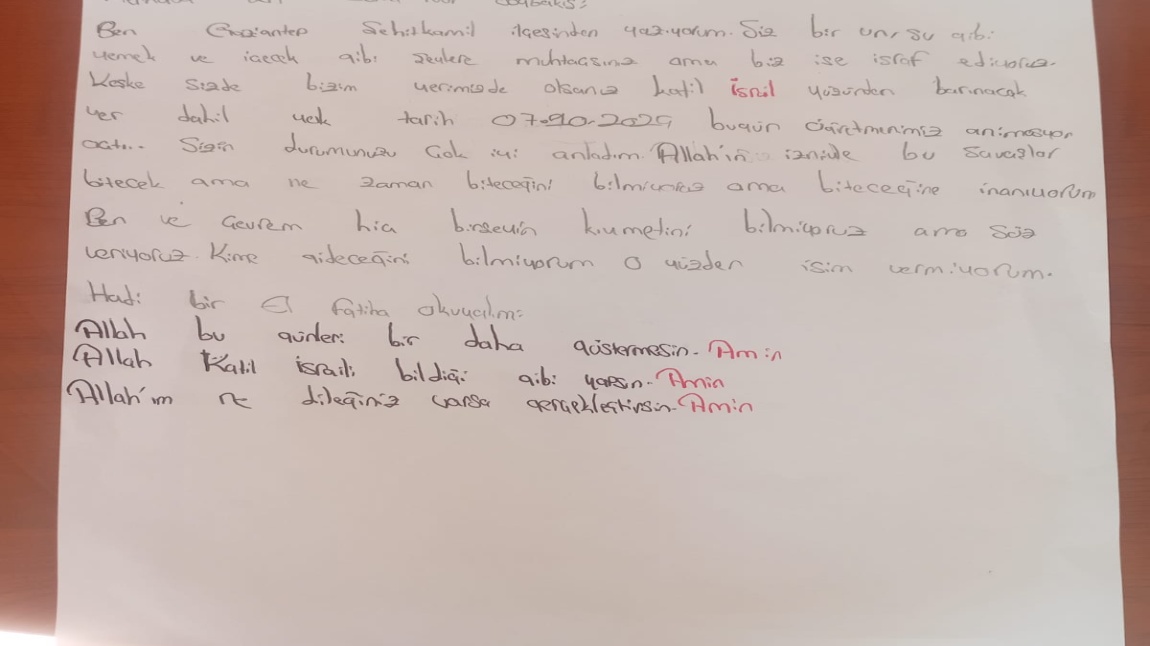 Ben Gaziantep Sehitkamil ilçesinden yazıyorum. Siz bir un, su gibi
yemek ve içecek gibi şeylere muhtaçsınız ama biz ise israf ediyoruz.
Keske sizde bizim yerimizde olsanız katil isril yüzünden barınacak
yer dahil yok tarih 07.10.2025 bugün öğretmenimiz animasyon
açtı.. Sizin durumunuzu çok iyi anladım. Allah'ın izniyle bu savaşlar
bitecek ama ne zaman biteceğini bilmiyoruz ama biteceğine inanıyorum
Ben ve çevrem hiç birşeyin kıymetini bilmiyoruz ama söz
veriyoruz. Kime gideceğini bilmiyorum o yüzden isim vermiyorum.
Hadi bir El fatiha okuyalım:
Allah bu günleri bir daha göstermesin. Amin
Allah Katil israili bildiği gibi yapsın. Amin
Allah'ım ne dileğiniz varsa gerçekleştirsin. Amin